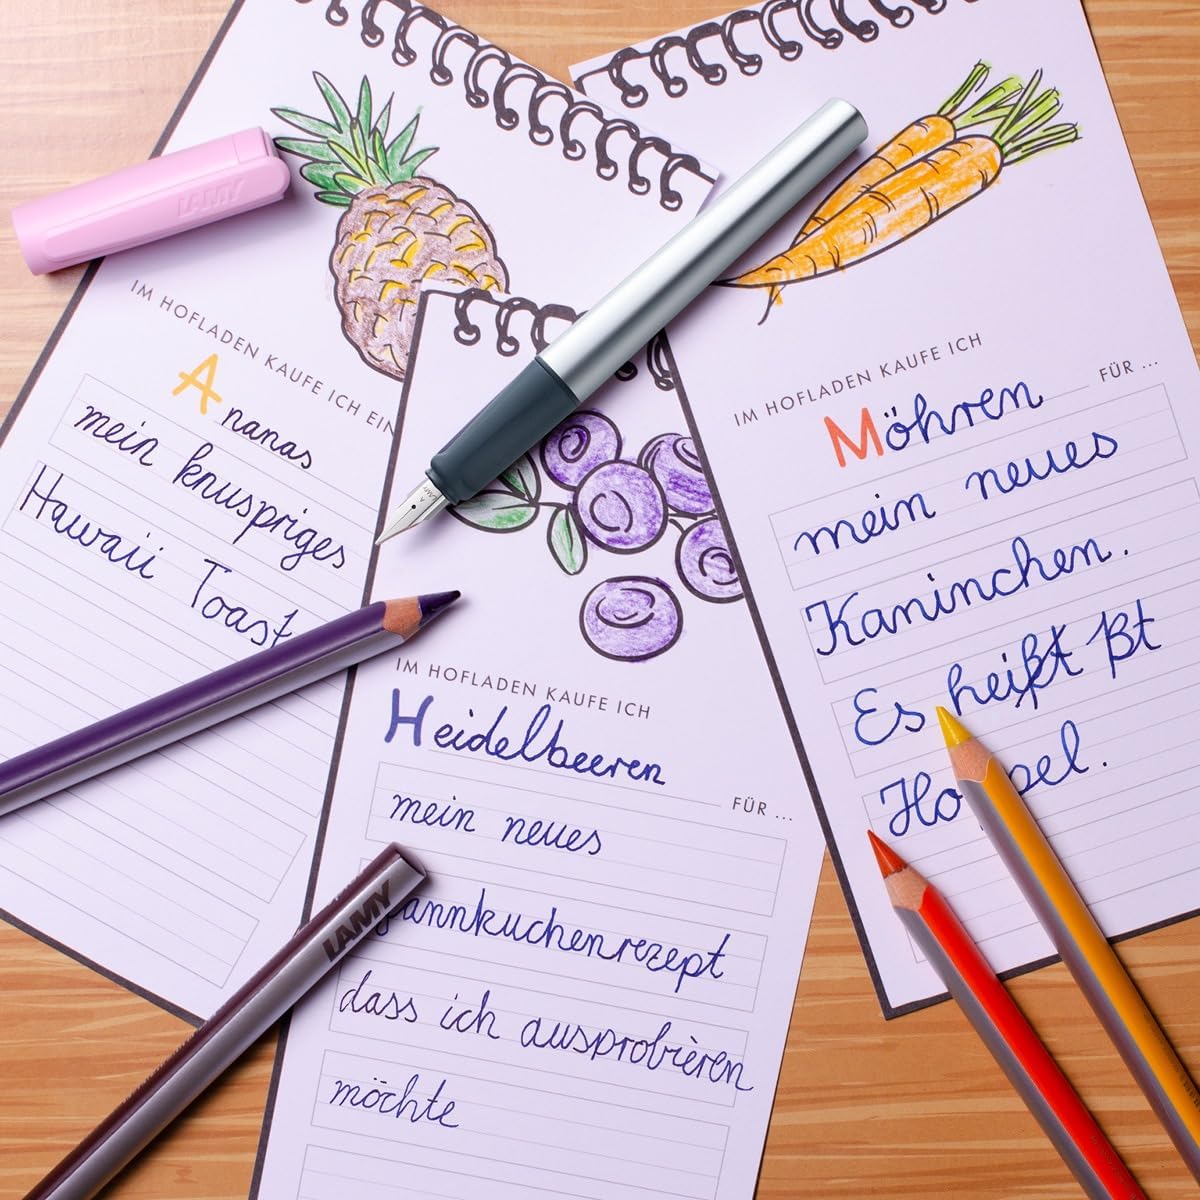 LAMY
IM HOFLADEN KAUFE ICH EIN
Ananas
mein knuspriges
Hawaii Toast
IM HOFLADEN KAUFE ICH
Heidelbeeren
FÜR ...
mein neues
annkuchenrezept
dass ich ausprobieren
möchte
IM HOFLADEN KAUFE ICH
Möhren
FÜR ...
mein neues
Kaninchen.
Es heißt ßt
Ho pel.
LAMY
LAMY